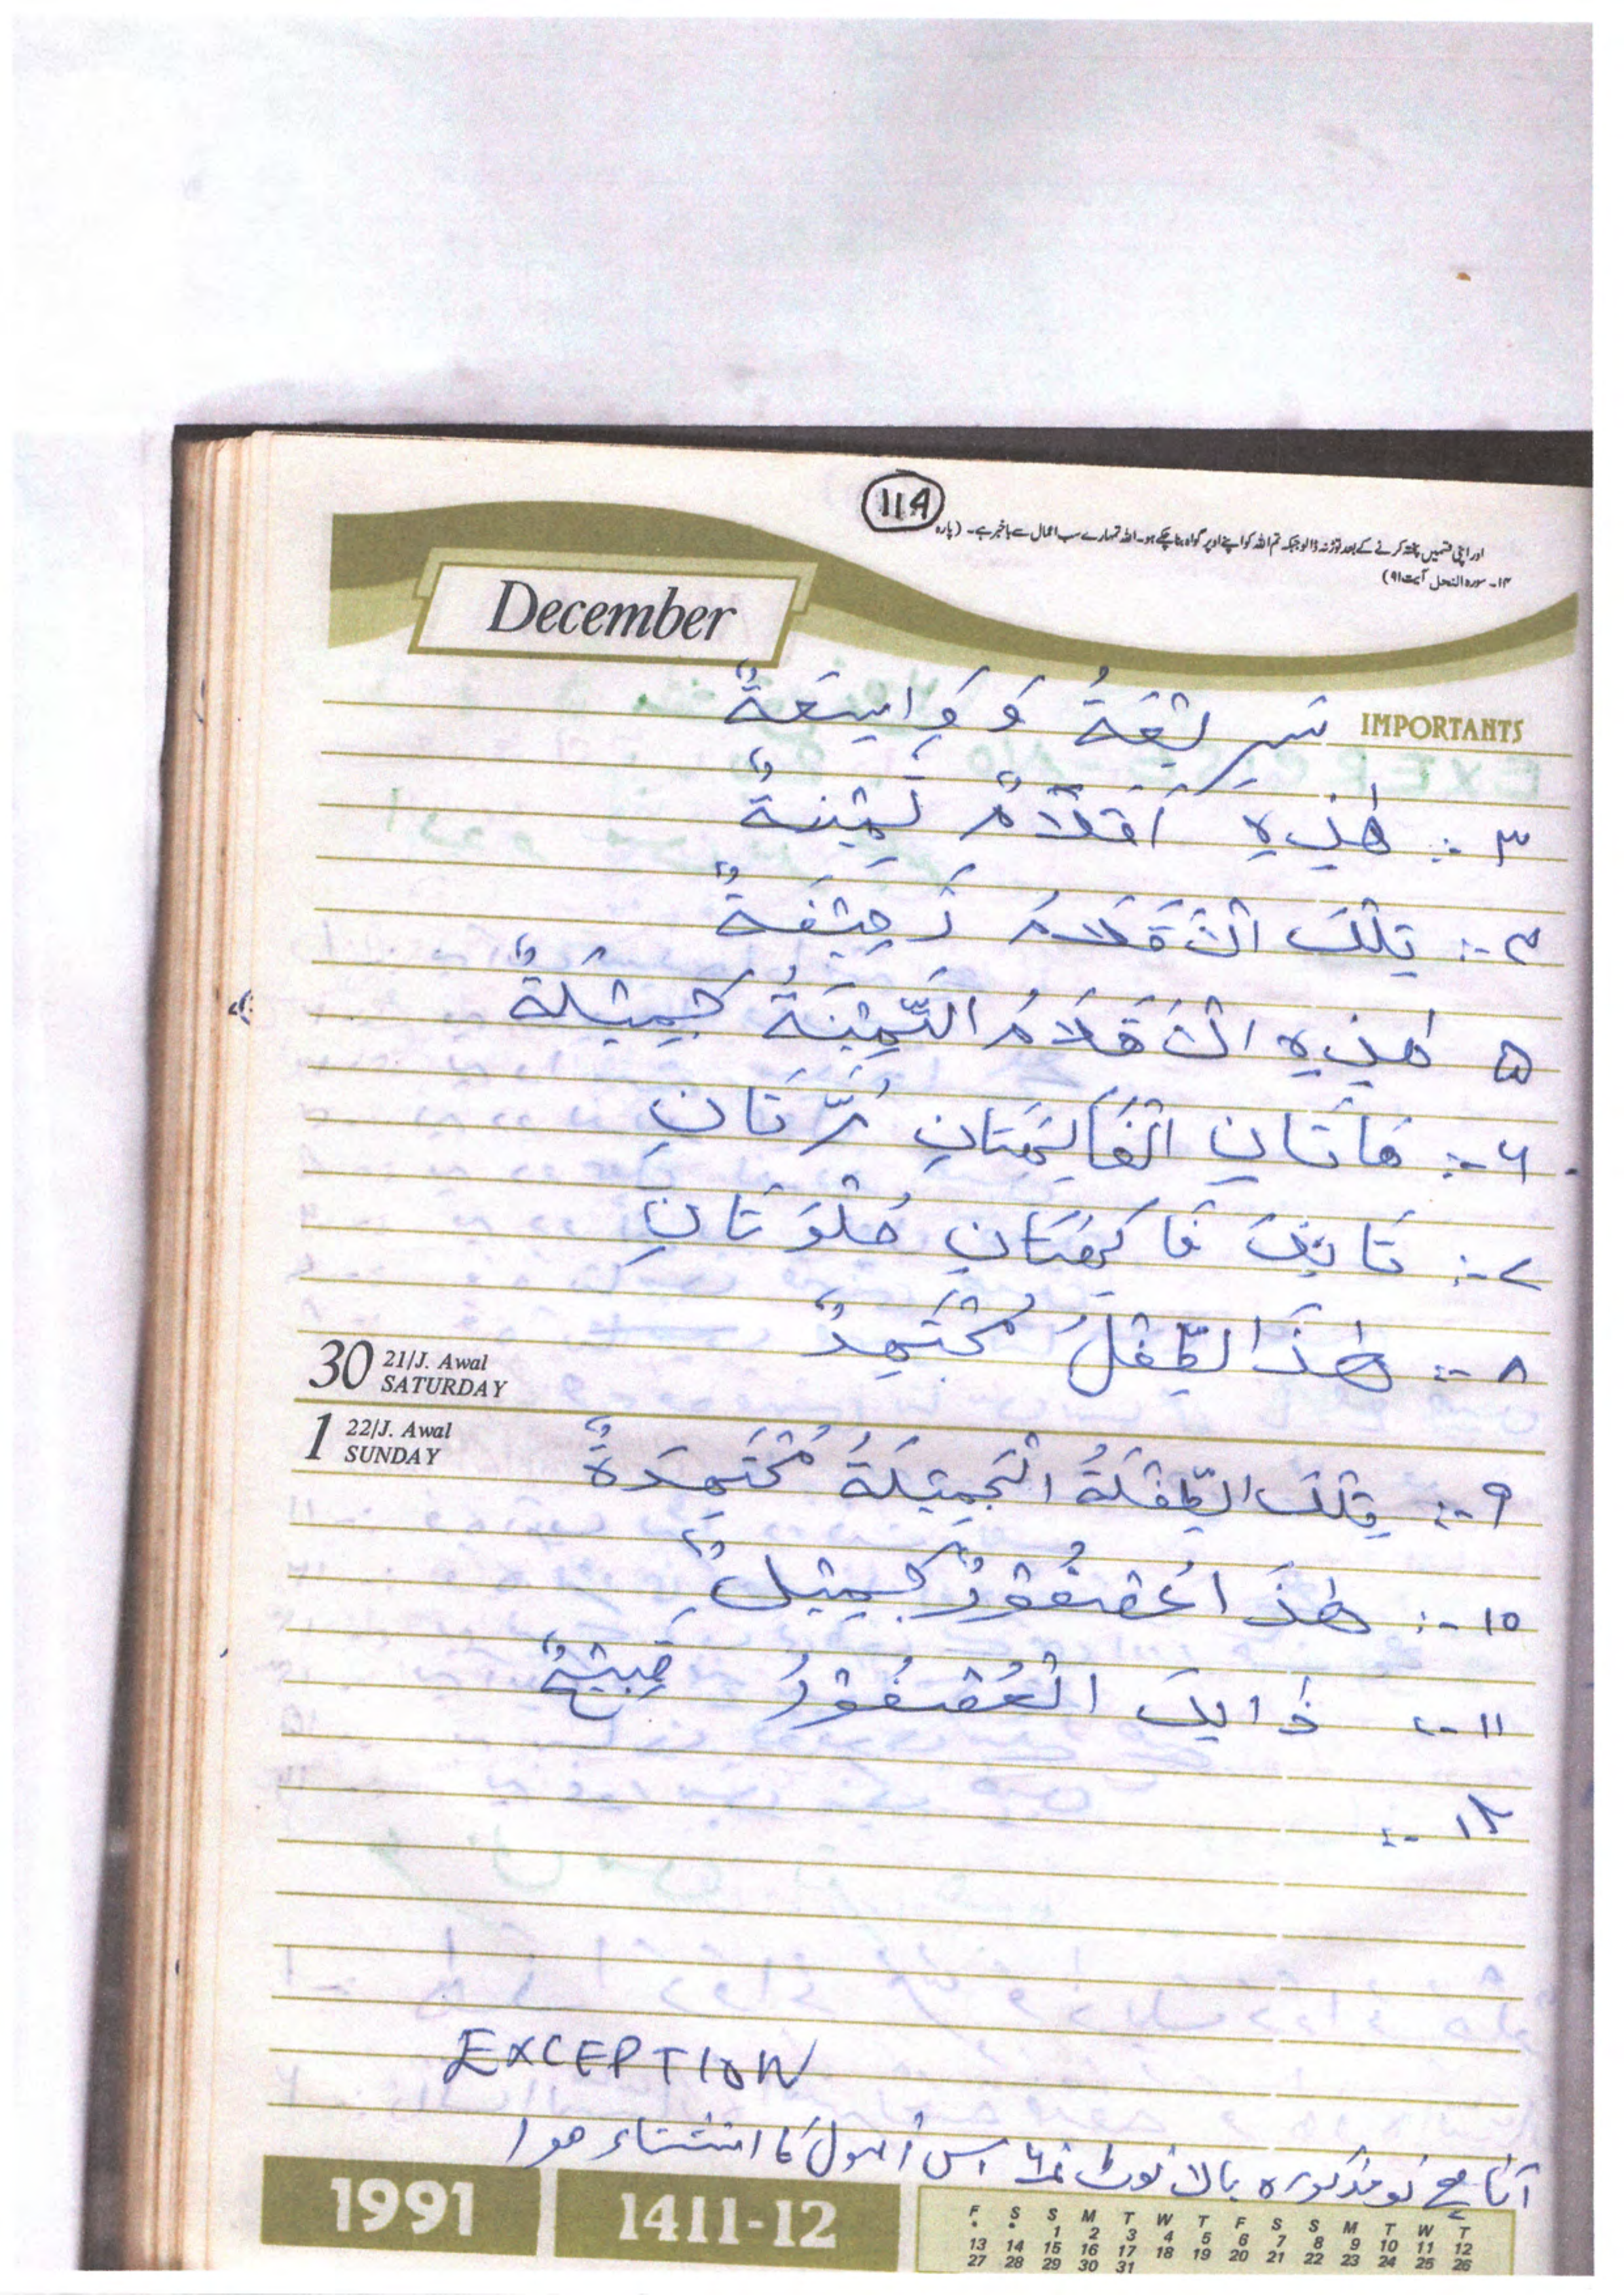 114
اور اپنی قسمیں پختہ کرنے کے بعد توڑ نہ ڈالو جبکہ تم اللہ کو اپنے اوپر گواہ بنا چکے ہو۔ اللہ تمہارے سب اعمال سے باخبر ہے۔ (پارہ
۱۴۔ سورہ النحل آیت ۹۱)
December
IMPORTANTS
سَرِيْعَةُ وَ وَاسِعَةٌ
۳ -: هٰذِهِ اَقْلَامٌ ثَمِيْنَةٌ
۴ -: تِلْكَ الْاَقْلَامُ رَخِيْفَةٌ
۵ هٰذِهِ الْاَقْلَامُ الثَّمِيْنَةُ جَمِيْلَةٌ
۶ -: هَاتَانِ الْفَاكِهَتَانِ مُرَّتَانِ
۷ -: تَانِكَ فَاكِهَتَانِ حُلْوَتَانِ
۸ -: هٰذَا الطِّفْلُ مُجْتَهِدٌ
30 21/J. Awal
SATURDAY
1 22/J. Awal
SUNDAY
۹ -: تِلْكَ الطِّفْلَةُ الْجَمِيْلَةُ مُجْتَهِدَةٌ
۱۰ -: هٰذَا عُصْفُوْرٌ جَمِيْلٌ
۱۱ -: ذَالِكَ الْعُصْفُوْرُ قَبِيْحٌ
۱۲ -:
EXCEPTION
آتا ہے تو مذکورہ بالا نوٹ نمبر اس اُصول کا استثناء ہوا
1991
1411-12
F S S M T W T F S S M T W T
* * 1 2 3 4 5 6 7 8 9 10 11 12
13 14 15 16 17 18 19 20 21 22 23 24 25 26
27 28 29 30 31